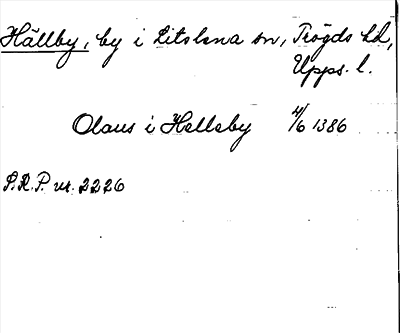 Hällby, by i Litslena sn, Trögds hd,
Upps. l.
Olaus i Helleby 4/6 1386
S.R.P. nr. 2226